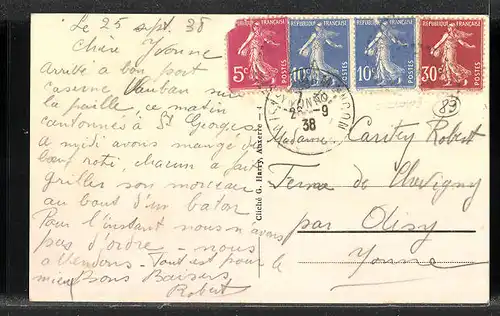 Le 25 sept. 38
Chère Yvonne
Arrivé à bon port
caserne Vauban sur
la paille, ce matin
cantonnés à St Georges
a midi avons mangé du
bœuf roti, chacun a fait
griller son morceau
au bout d'un baton
Pour l'instant nous n'avons
pas d'ordre - nous
attendons - Tout est pour le
mieux Bons Baisers
Robert
Cliché G. Harry, Auxerre
REPUBLIQUE FRANÇAISE
5c
POSTES
REPUBLIQUE FRANÇAISE
10c
POSTES
REPUBLIQUE FRANÇAISE
10c
POSTES
REPUBLIQUE FRANÇAISE
30c
POSTES
YONNE
9
38
89
Madame Robert
Ferme de Chevigny
par
Yonne